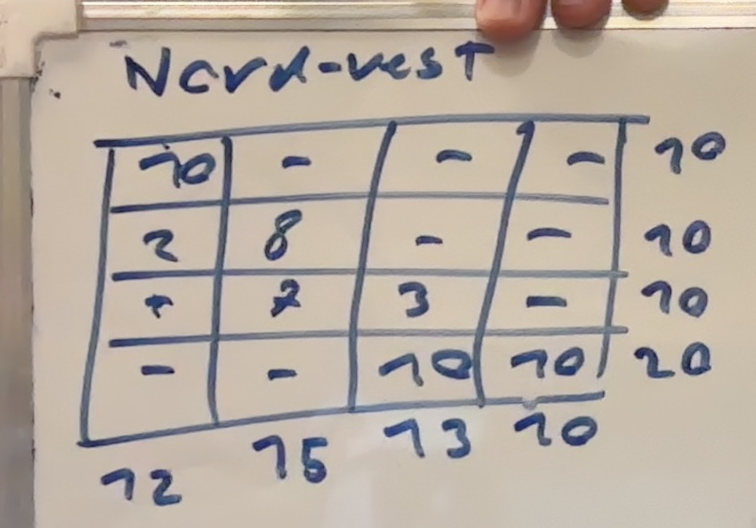 Nord-vest
10 - - - 10
2 8 - - 10
- 7 3 - 10
- - 10 10 20
12 15 13 10